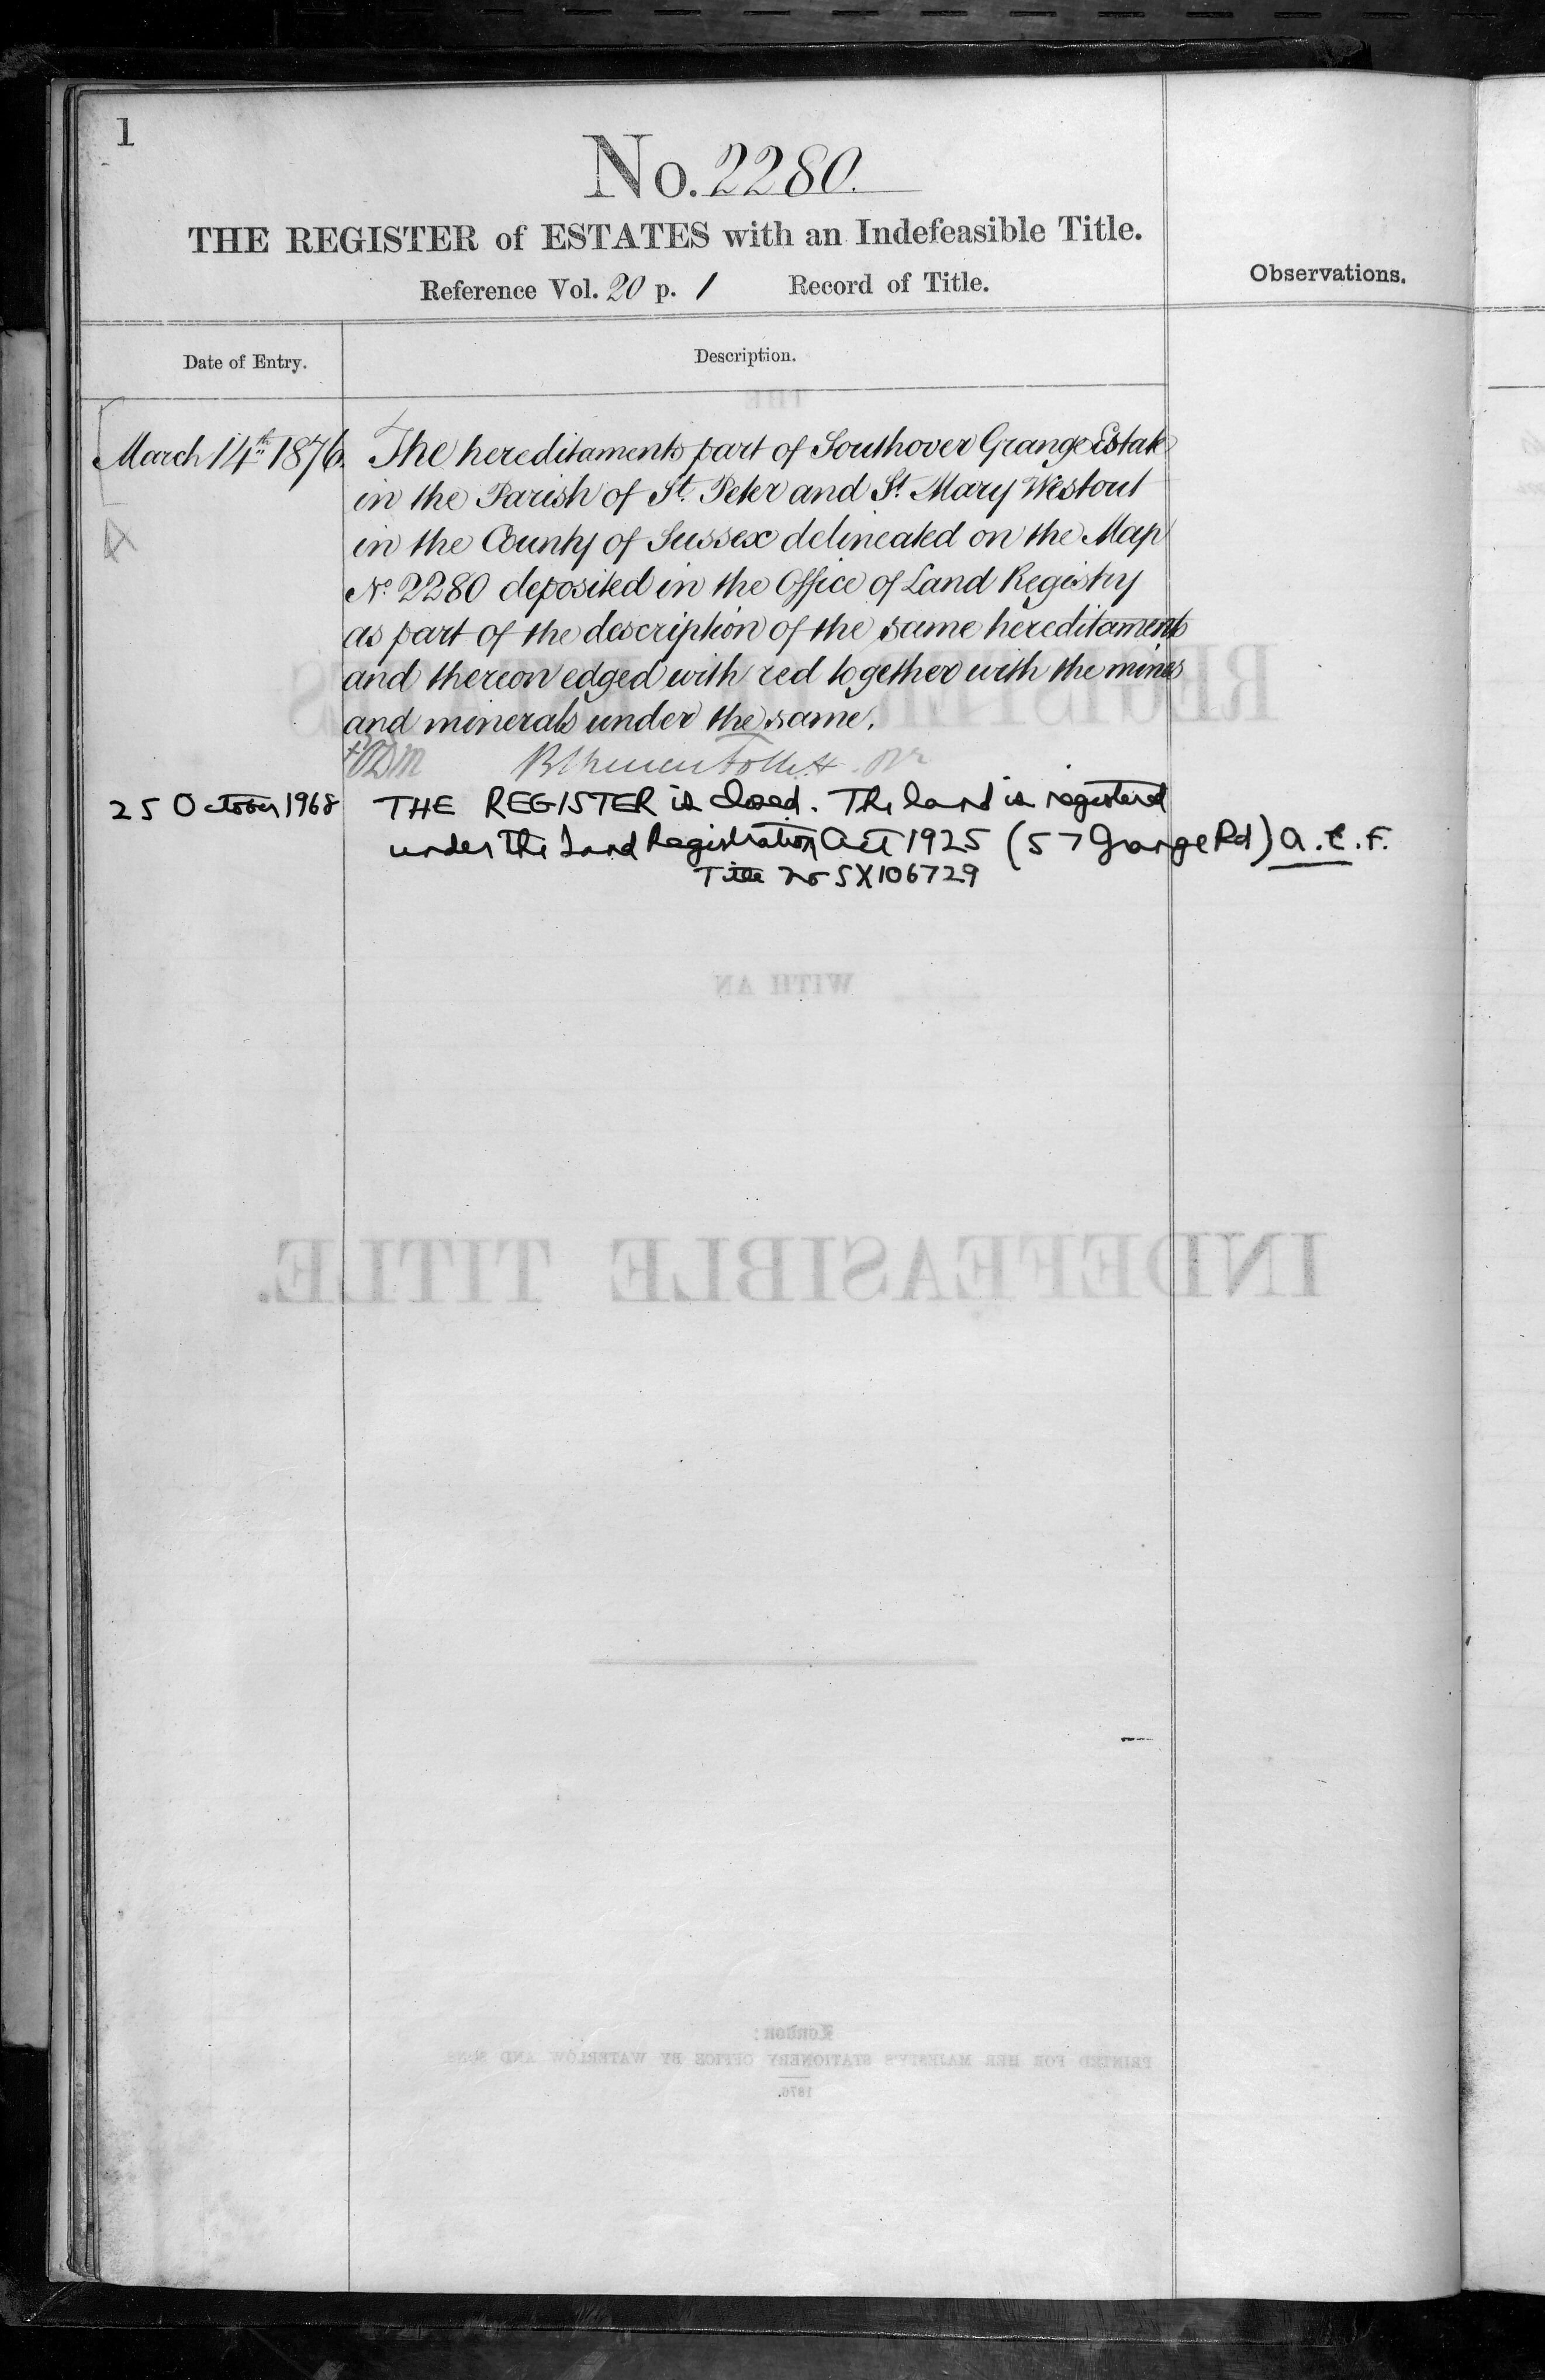 1
No. 2280.
THE REGISTER of ESTATES with an Indefeasible Title.
Reference Vol. 20 p. 1 Record of Title.
Observations.
Date of Entry.
Description.
March 14th 1876. The hereditaments part of Southover Grange Estate
in the Parish of St. Peter and St. Mary Westout
in the County of Sussex delineated on the Map
No. 2280 deposited in the Office of Land Registry
as part of the description of the same hereditaments
and thereon edged with red together with the mines
and minerals under the same.
Follett
25 October 1968 THE REGISTER is closed. The land is registered
under the Land Registration Act 1925 (57 Grange Rd) A.C.F.
Title No SX106729
THE
REGISTER
WITH AN
INDEFEASIBLE TITLE.
London:
PRINTED FOR HER MAJESTY'S STATIONERY OFFICE BY WATERLOW AND SONS
1876.